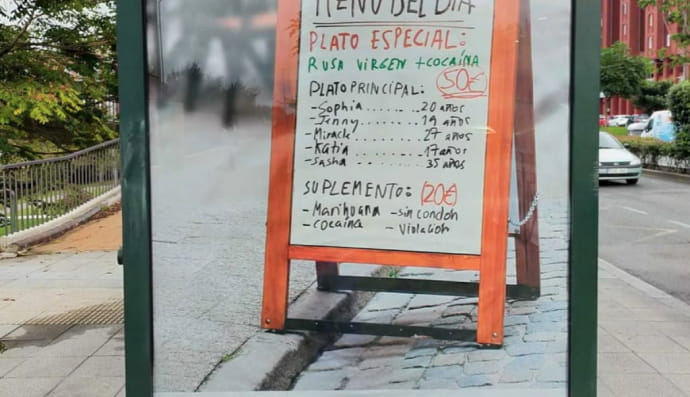 MENÚ DEL DÍA
PLATO ESPECIAL:
RUSA VIRGEN + COCAÍNA
50€
PLATO PRINCIPAL:
- Sophia ........ 20 años
- Jenny ........ 19 años
- Miracle ........ 27 años
- Katia ........ 17 años
- Sasha ........ 35 años
SUPLEMENTO: 120€
- Marihuana - sin condon
- Cocaína - Violación